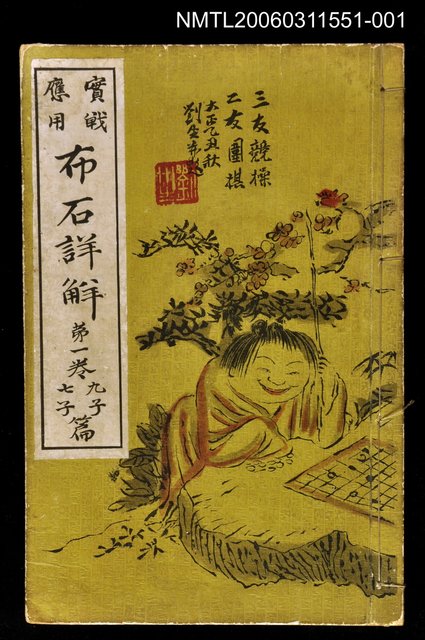 NMTL20060311551-001
實戰
應用
布石詳解
第一卷
九子
七子
篇
三友競操
二友圍棋
大正乙丑秋